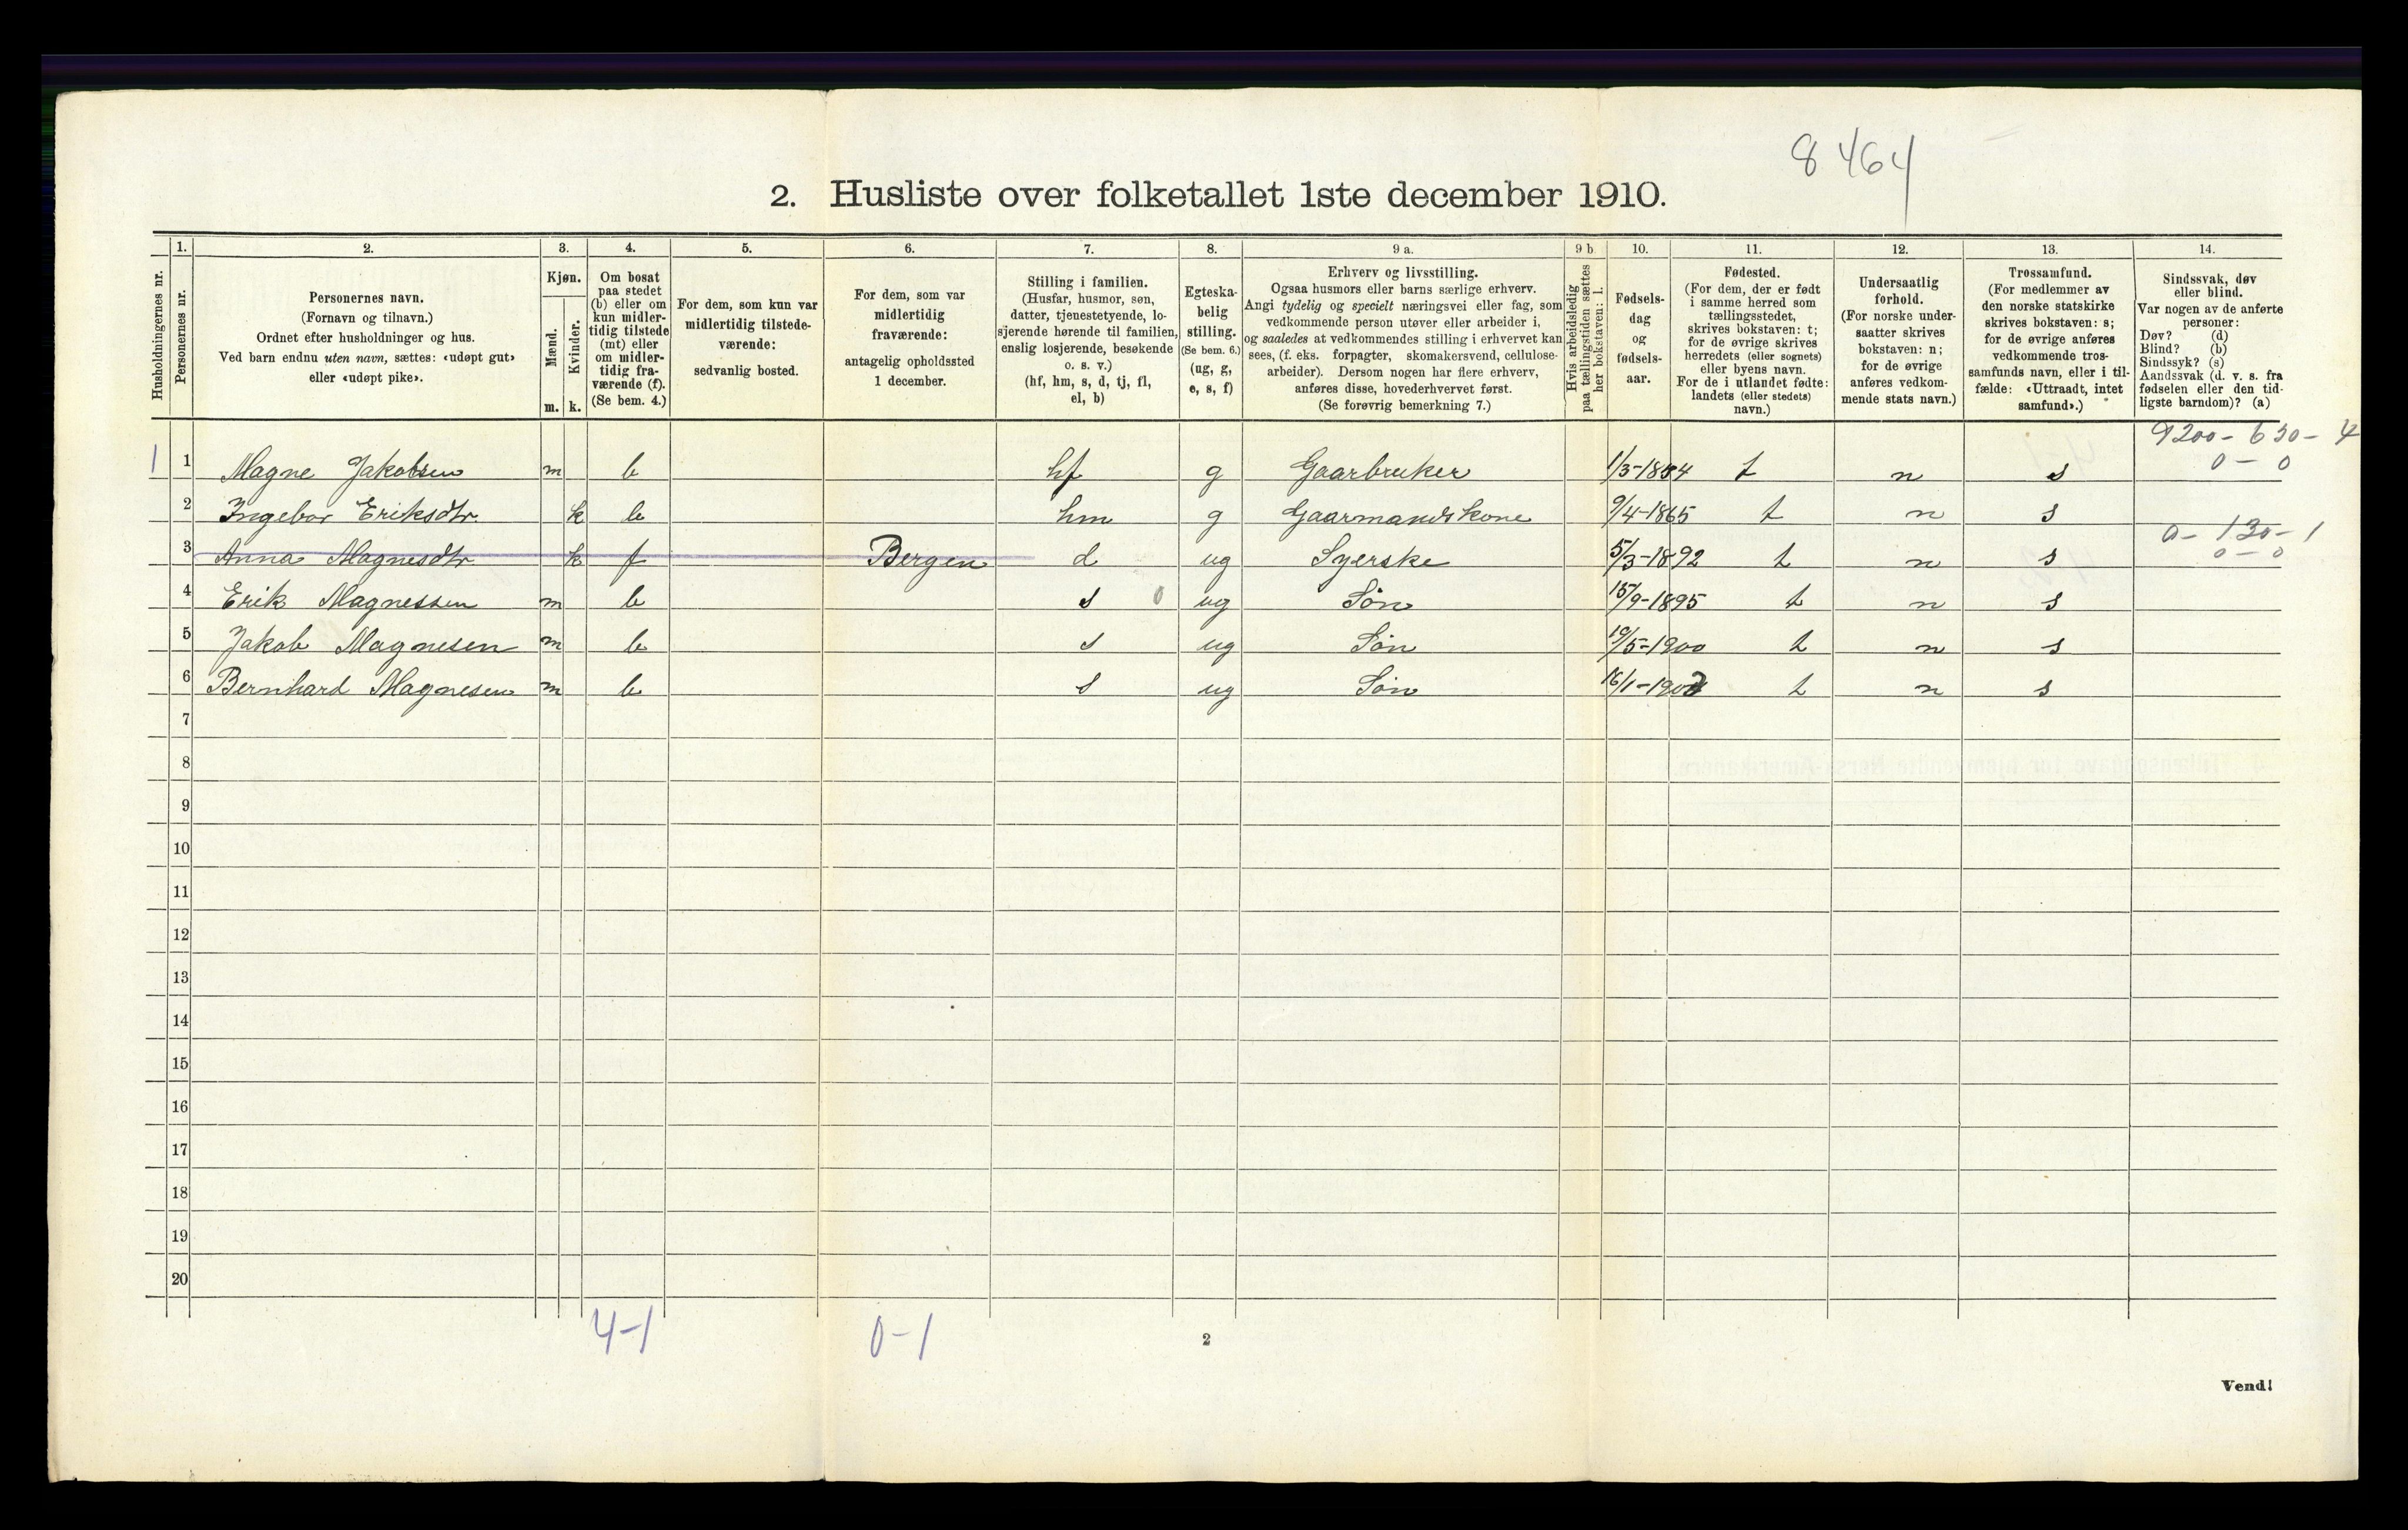 8 464
2. Husliste over folketallet 1ste december 1910.
Husholdningernes nr.
1. Personernes nr.
2. Personernes navn.
(Fornavn og tilnavn.)
Ordnet efter husholdninger og hus.
Ved barn endnu uten navn, sættes: «udøpt gut»
eller «udøpt pike».
3. Kjøn.
Mænd. m.
Kvinder. k.
4. Om bosat
paa stedet
(b) eller om
kun midler-
tidig tilstede
(mt) eller
om midler-
tidig fra-
værende (f).
(Se bem. 4.)
5. For dem, som kun var
midlertidig tilstede-
værende:
sedvanlig bosted.
6. For dem, som var
midlertidig
fraværende:
antagelig opholdssted
1 december.
7. Stilling i familien.
(Husfar, husmor, søn,
datter, tjenestetyende, lo-
sjerende hørende til familien,
enslig losjerende, besøkende
o. s. v.)
(hf, hm, s, d, tj, fl,
el, b)
8. Egteska-
belig
stilling.
(Se bem. 6.)
(ug, g,
e, s, f)
9 a. Erhverv og livsstilling.
Ogsaa husmors eller barns særlige erhverv.
Angi tydelig og specielt næringsvei eller fag, som
vedkommende person utøver eller arbeider i,
og saaledes at vedkommendes stilling i erhvervet kan
sees, (f. eks. forpagter, skomakersvend, cellulose-
arbeider). Dersom nogen har flere erhverv,
anføres disse, hovederhvervet først.
(Se forøvrig bemerkning 7.)
9 b Hvis arbeidsledig
paa tællingstiden sættes
her bokstaven: l.
10. Fødsels-
dag
og
fødsels-
aar.
11. Fødested.
(For dem, der er født
i samme herred som
tællingsstedet,
skrives bokstaven: t;
for de øvrige skrives
herredets (eller sognets)
eller byens navn.
For de i utlandet fødte:
landets (eller stedets)
navn.)
12. Undersaatlig
forhold.
(For norske under-
saatter skrives
bokstaven: n;
for de øvrige
anføres vedkom-
mende stats navn.)
13. Trossamfund.
(For medlemmer av
den norske statskirke
skrives bokstaven: s;
for de øvrige anføres
vedkommende tros-
samfunds navn, eller i til-
fælde: «Uttraadt, intet
samfund».)
14. Sindssvak, døv
eller blind.
Var nogen av de anførte
personer:
Døv? (d)
Blind? (b)
Sindssyk? (s)
Aandssvak (d. v. s. fra
fødselen eller den tid-
ligste barndom)? (a)
9200 - 630 - 4
0 - 0
1 1 Magne Jakobsen m b hf g Gaarbruker 1/3-1854 t n s
2 Ingebor Eriksdtr. k b hm g Gaarmandskone 9/4-1865 t n s
0 - 130 - 1
0 - 0
3 Anna Magnesdtr k f Bergen d ug Syerske 5/3-1892 t n s
4 Erik Magnessen m b s 0 ug Søn 15/9-1895 t n s
5 Jakob Magnesen m b s ug Søn 19/5-1900 t n s
6 Bernhard Magnesen m b s ug Søn 16/1-190 t n s
7
8
9
10
11
12
13
14
15
16
17
18
19
20
4-1 0-1
2
Vend!